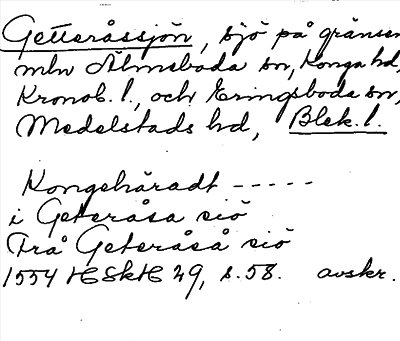 Getteråssjön, sjö på gränsen
mln Älmeboda sn, Konga hd,
Kronob. l., och Eringsboda sn,
Medelstads hd, Blek. l.
Kongehäradt - - - - -
i Geteråsa siö
Frå Geteråså siö
1554 HSkH 29, s. 58. avskr.